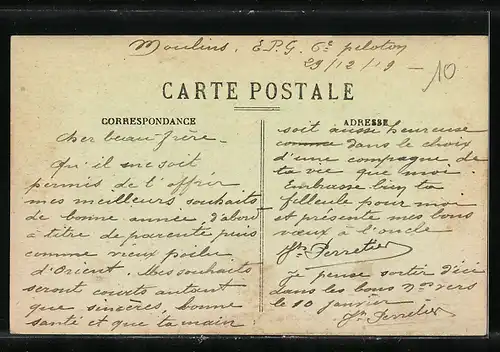 Moulins, E.P.G. 6e peloton
29/12/19
10
CARTE POSTALE
CORRESPONDANCE
Cher beau frère -
Qu'il me soit
permis de t'offrir
mes meilleurs souhaits
de bonne année, d'abord
à titre de parenté puis
comme vieux poilu
d'Orient. Mes souhaits
seront courts autant
que sincères, bonne
santé et que ta main
ADRESSE
soit aussi heureuse
comme dans le choix
d'une compagne, de
ta vie que moi.
Embrasse bien ta
filleule pour moi
et présente mes bons
vœux à l'oncle
Perretier
Je pense sortir d'ici
dans les bons nos vers
le 10 janvier
Perretier